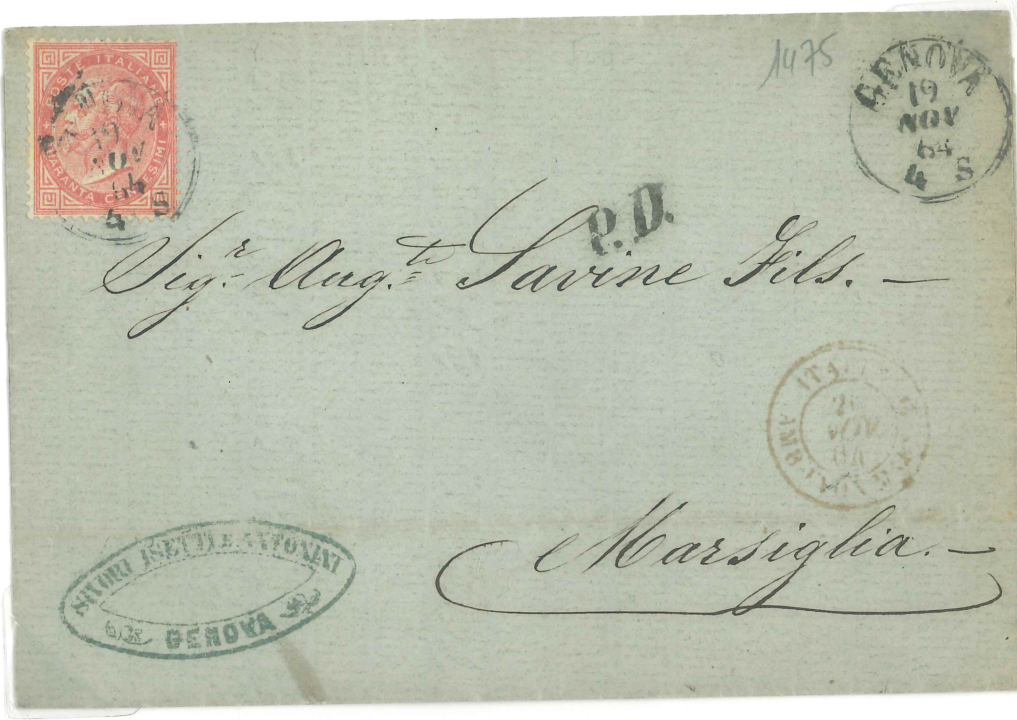 1475
POSTE ITALIANE
QUARANTA CENTESIMI
GENOVA
19
NOV
64
4 S
GENOVA
19
NOV
64
4 S
P.D.
Sigr. Augte. Savine Fils. —
ITAL
NOV
AMB.
Marsiglia. —
ISETTI E ANTONINI
GENOVA